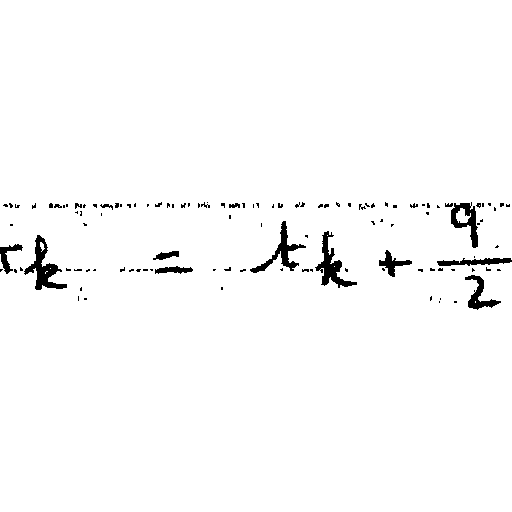 τ_k = t_k + q/2